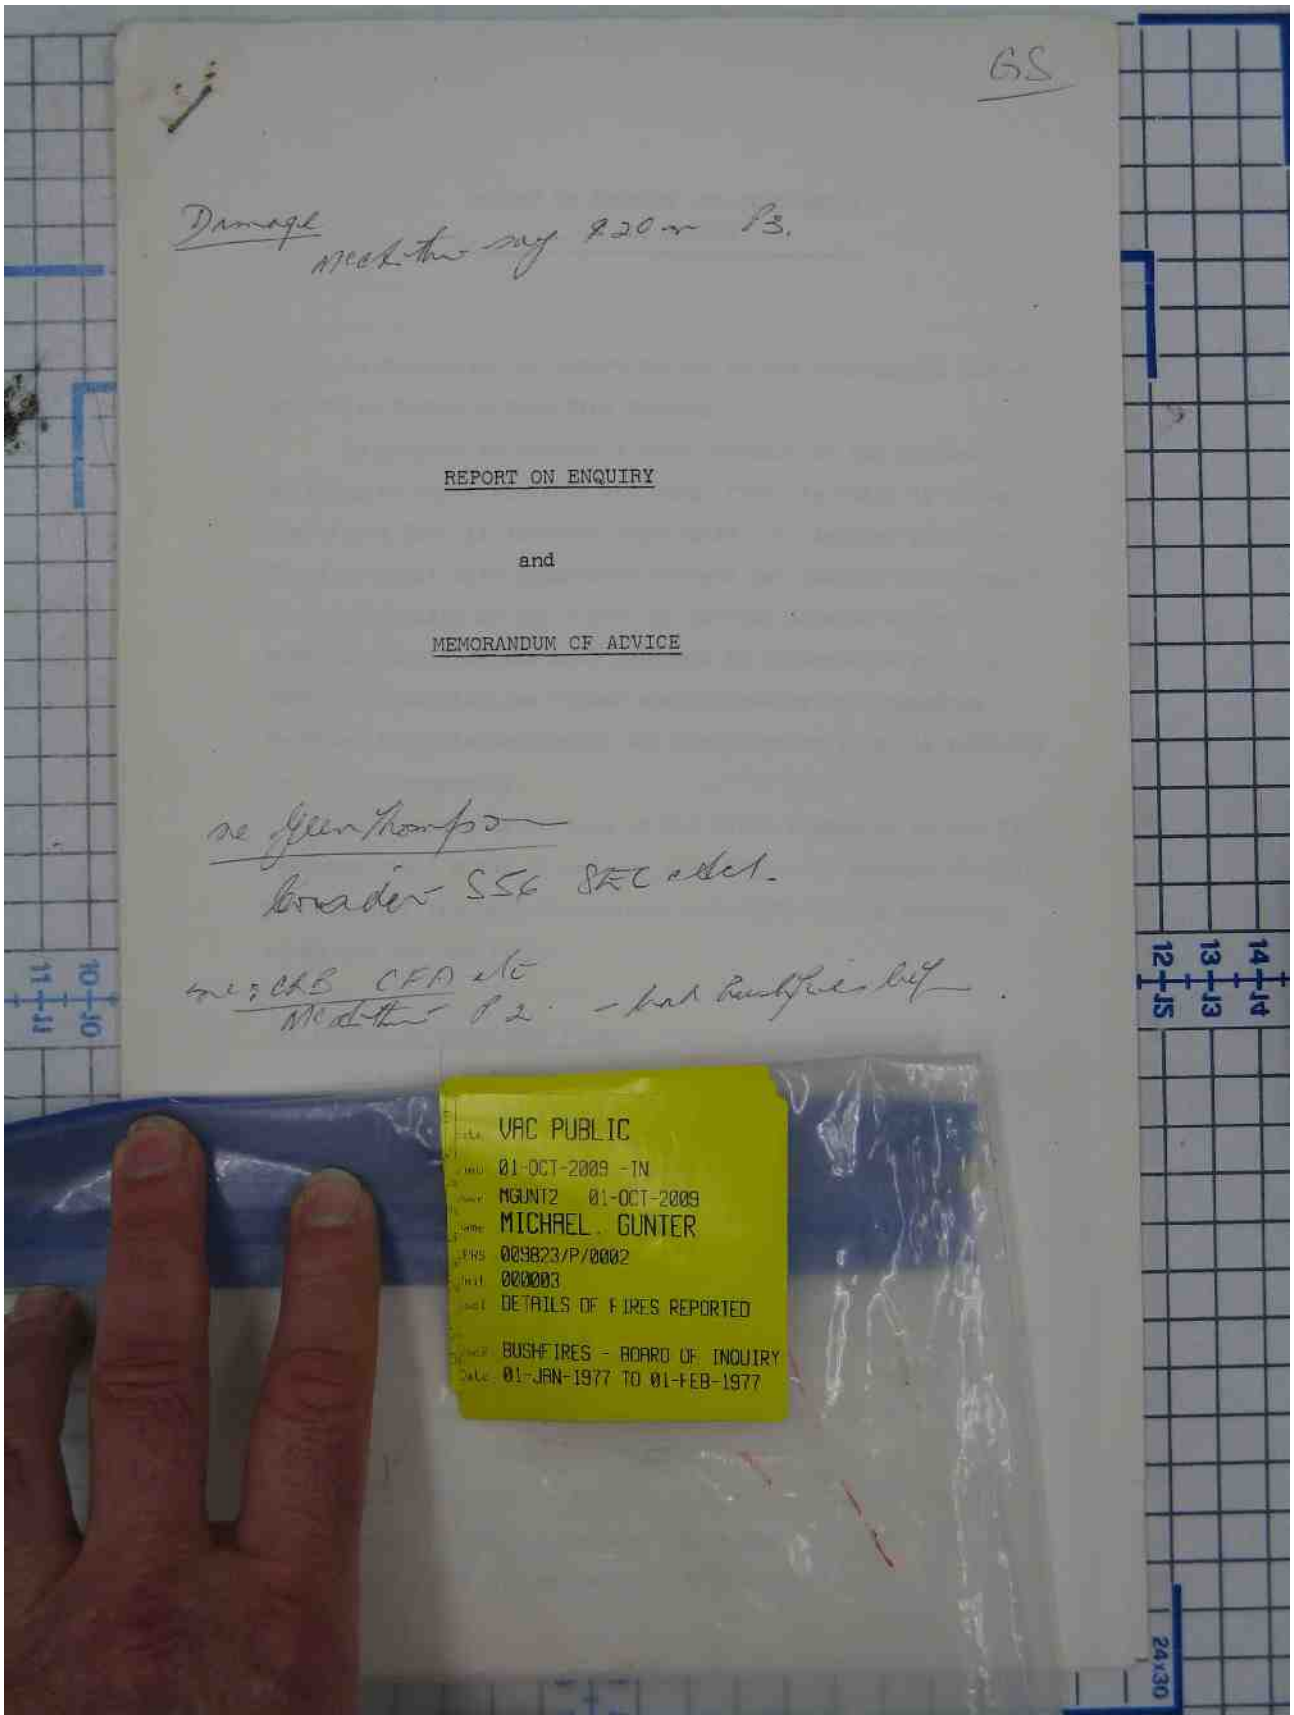 GS
Damage
say $20m P3.
REPORT ON ENQUIRY
and
MEMORANDUM OF ADVICE
re Glen Thompson
Consider S56 SEC Act.
re: CRB CFA etc
P2. - bad bushfires
VAC PUBLIC
01-OCT-2009 -IN
MGUNT2 01-OCT-2009
MICHAEL. GUNTER
009823/P/0002
000003
DETAILS OF FIRES REPORTED
BUSHFIRES - BOARD OF INQUIRY
Date 01-JAN-1977 TO 01-FEB-1977
11 10
11 10
12 13 14
15 13 14
24x30